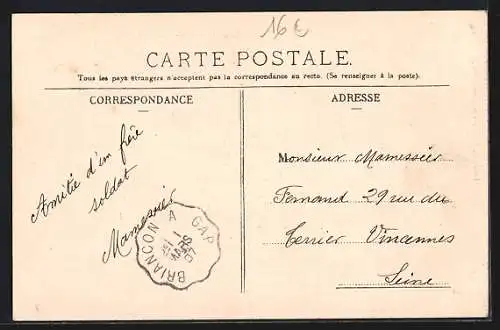 16€
CARTE POSTALE.
Tous les pays étrangers n'acceptent pas la correspondance au recto. (Se renseigner à la poste).
CORRESPONDANCE
ADRESSE
Amitié d'un frère
soldat
Mamessier
BRIANCON A GAP
1
MARS
07
Monsieur Mamessier
Fernand 29 rue du
Terrier Vincennes
Seine